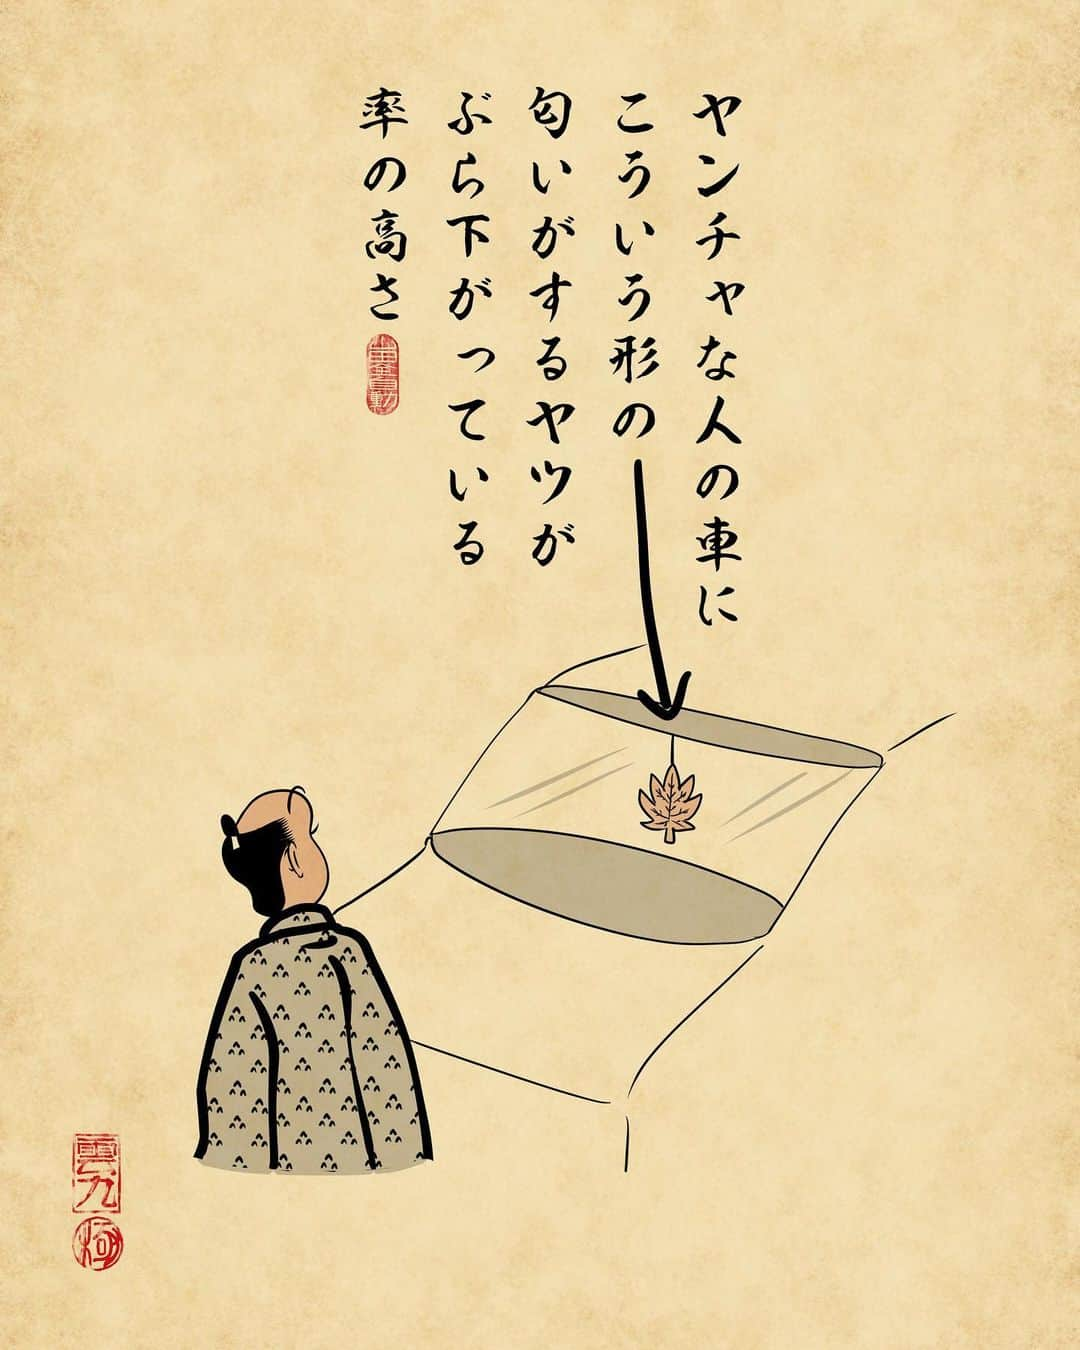 ヤンチャな人の車に
こういう形の
匂いがするヤツが
ぶら下がっている
率の高さ